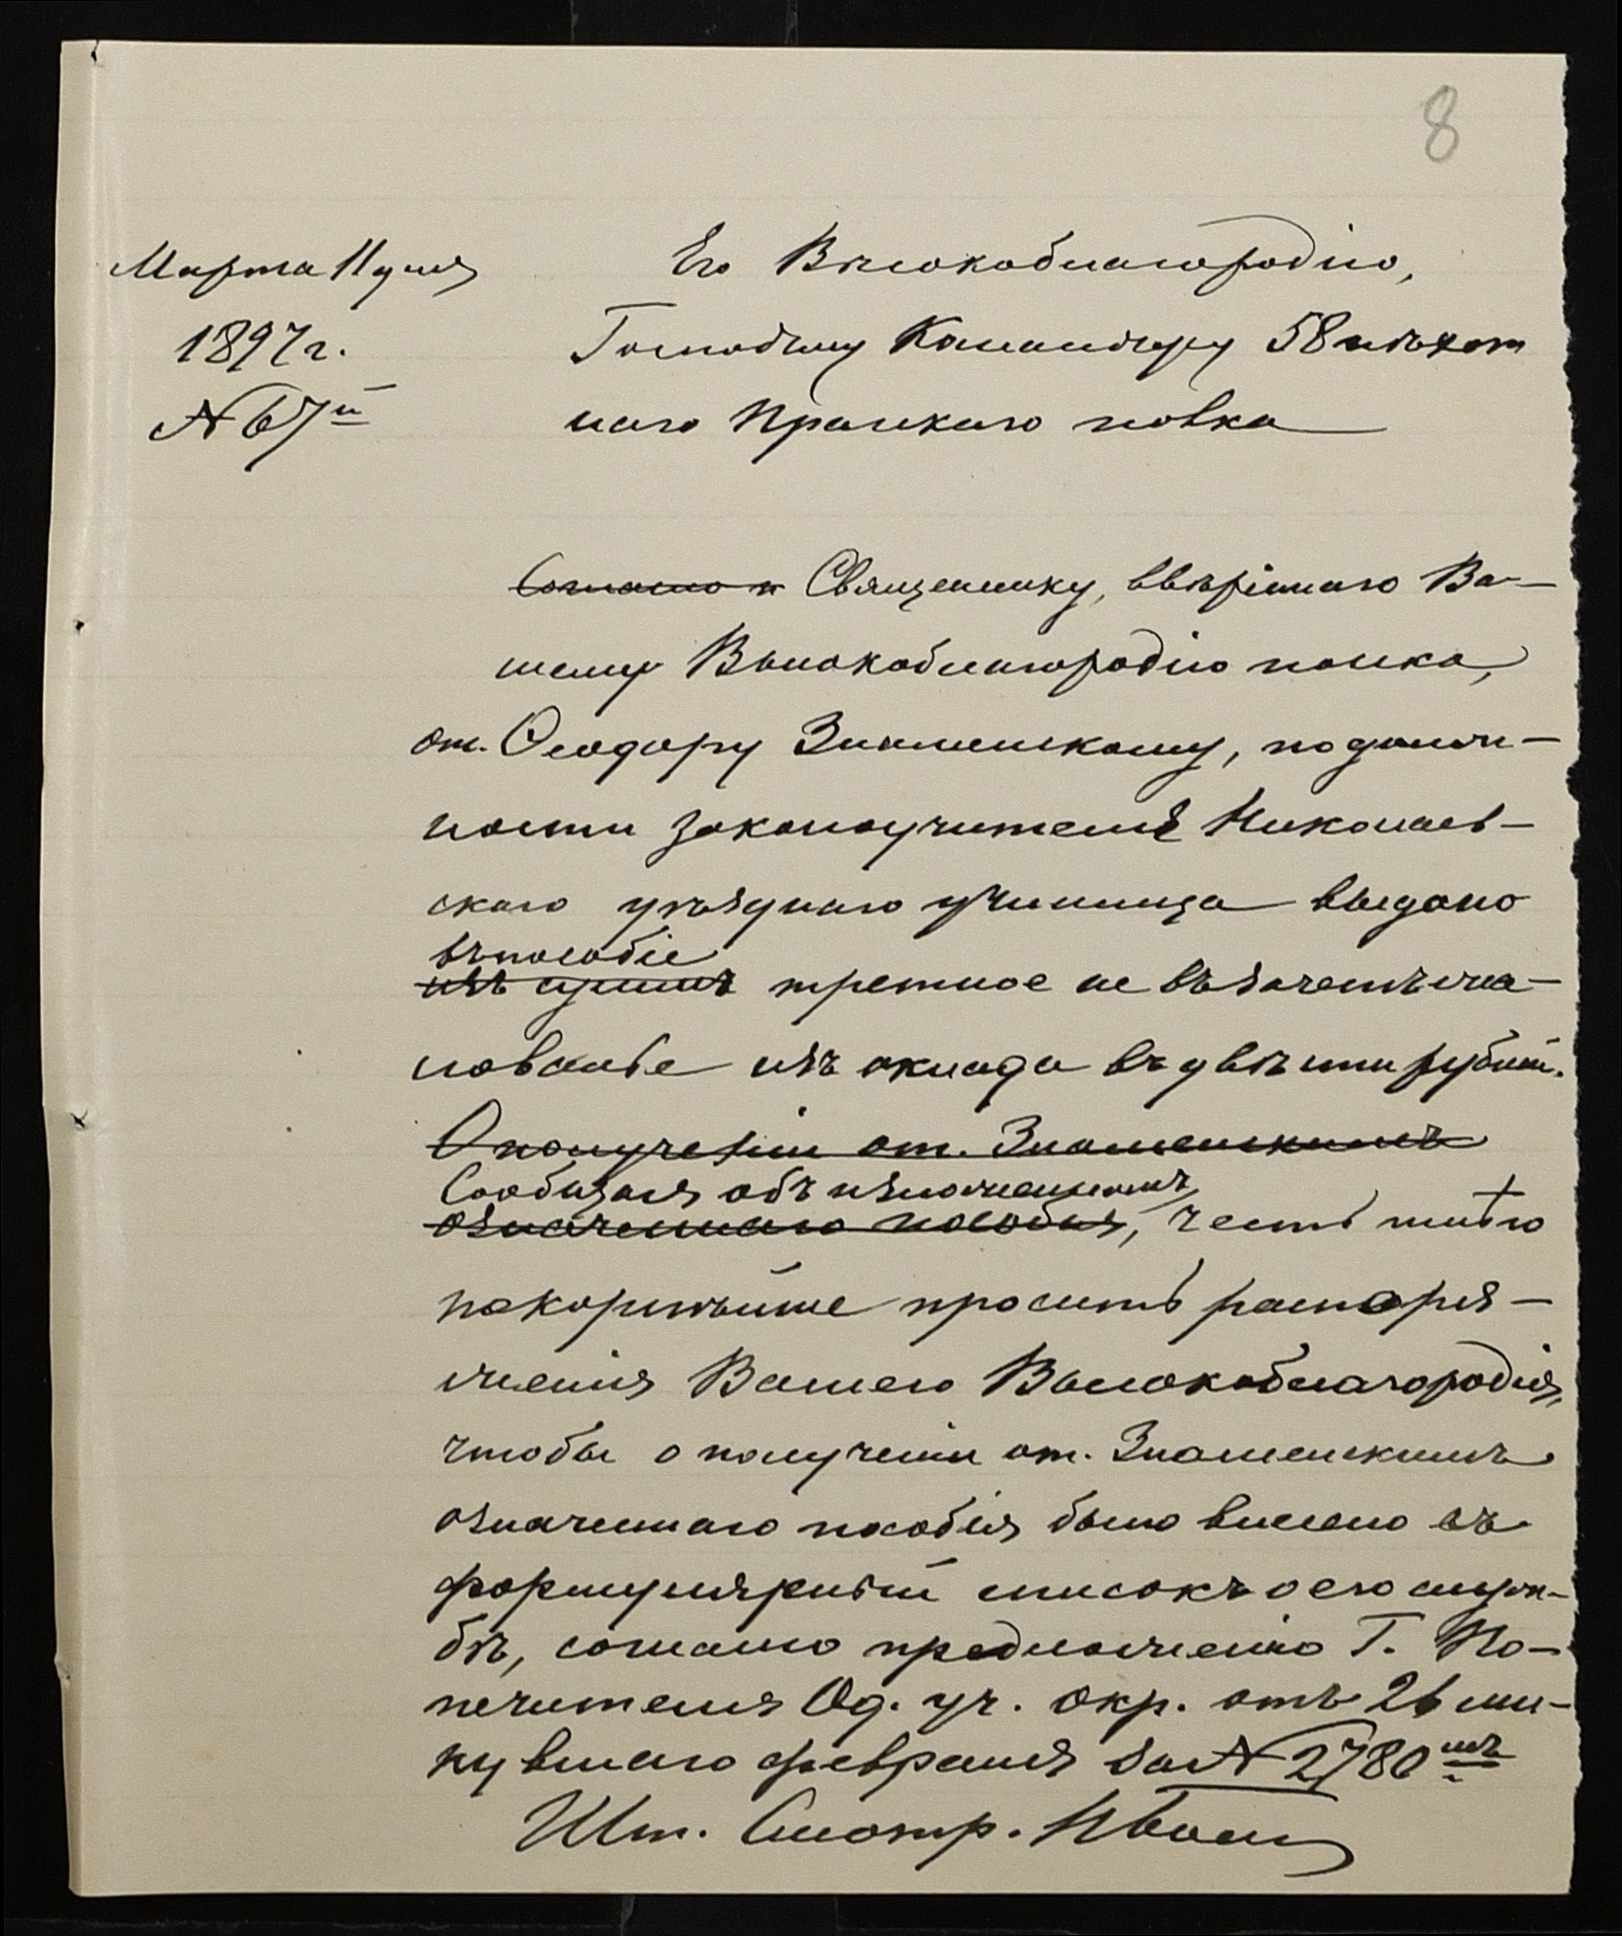 8
Марта 11 дня
1897 г.
№ 67й
Его Высокоблагородію,
Господину Командиру 58 пѣхот
наго Прагскаго полка
Согласно п Священнику, ввѣреннаго Ва-
шему Высокоблагородію полка,
от. Ѳеодору Знаменскому, по долж-
ности законоучителя Николаев-
скаго уѣзднаго училища выдано
въ пособіе
изъ суммъ третное не въ зачетъ жа-
лованье изъ оклада въ двѣсти рублей.
О полученіи от. Знаменскимъ
Сообщая объ изложенномъ
означеннаго пособія, честь имѣю
покорнѣйше просить распоря-
женія Вашего Высокоблагородія,
чтобы о полученіи от. Знаменскимъ
означеннаго пособія было внесено въ
формулярный списокъ о его служ-
бѣ, согласно предложенію Г. По-
печителя Од. уч. окр. отъ 26 ми-
нувшаго февраля за № 2780мъ
Шт. Смотр.